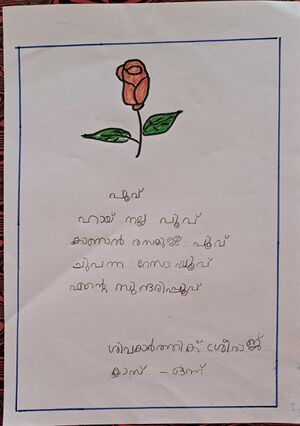 പൂവ്
ഹായ് നല്ല പൂവ്
കാണാൻ രസമുള്ള പൂവ്
ചുവന്ന റോസാപ്പൂവ്
എന്റെ സുന്ദരിപ്പൂവ്
ശിവകാർത്തിക് ശ്രീരാജ്
ക്ലാസ് - ഒന്ന്